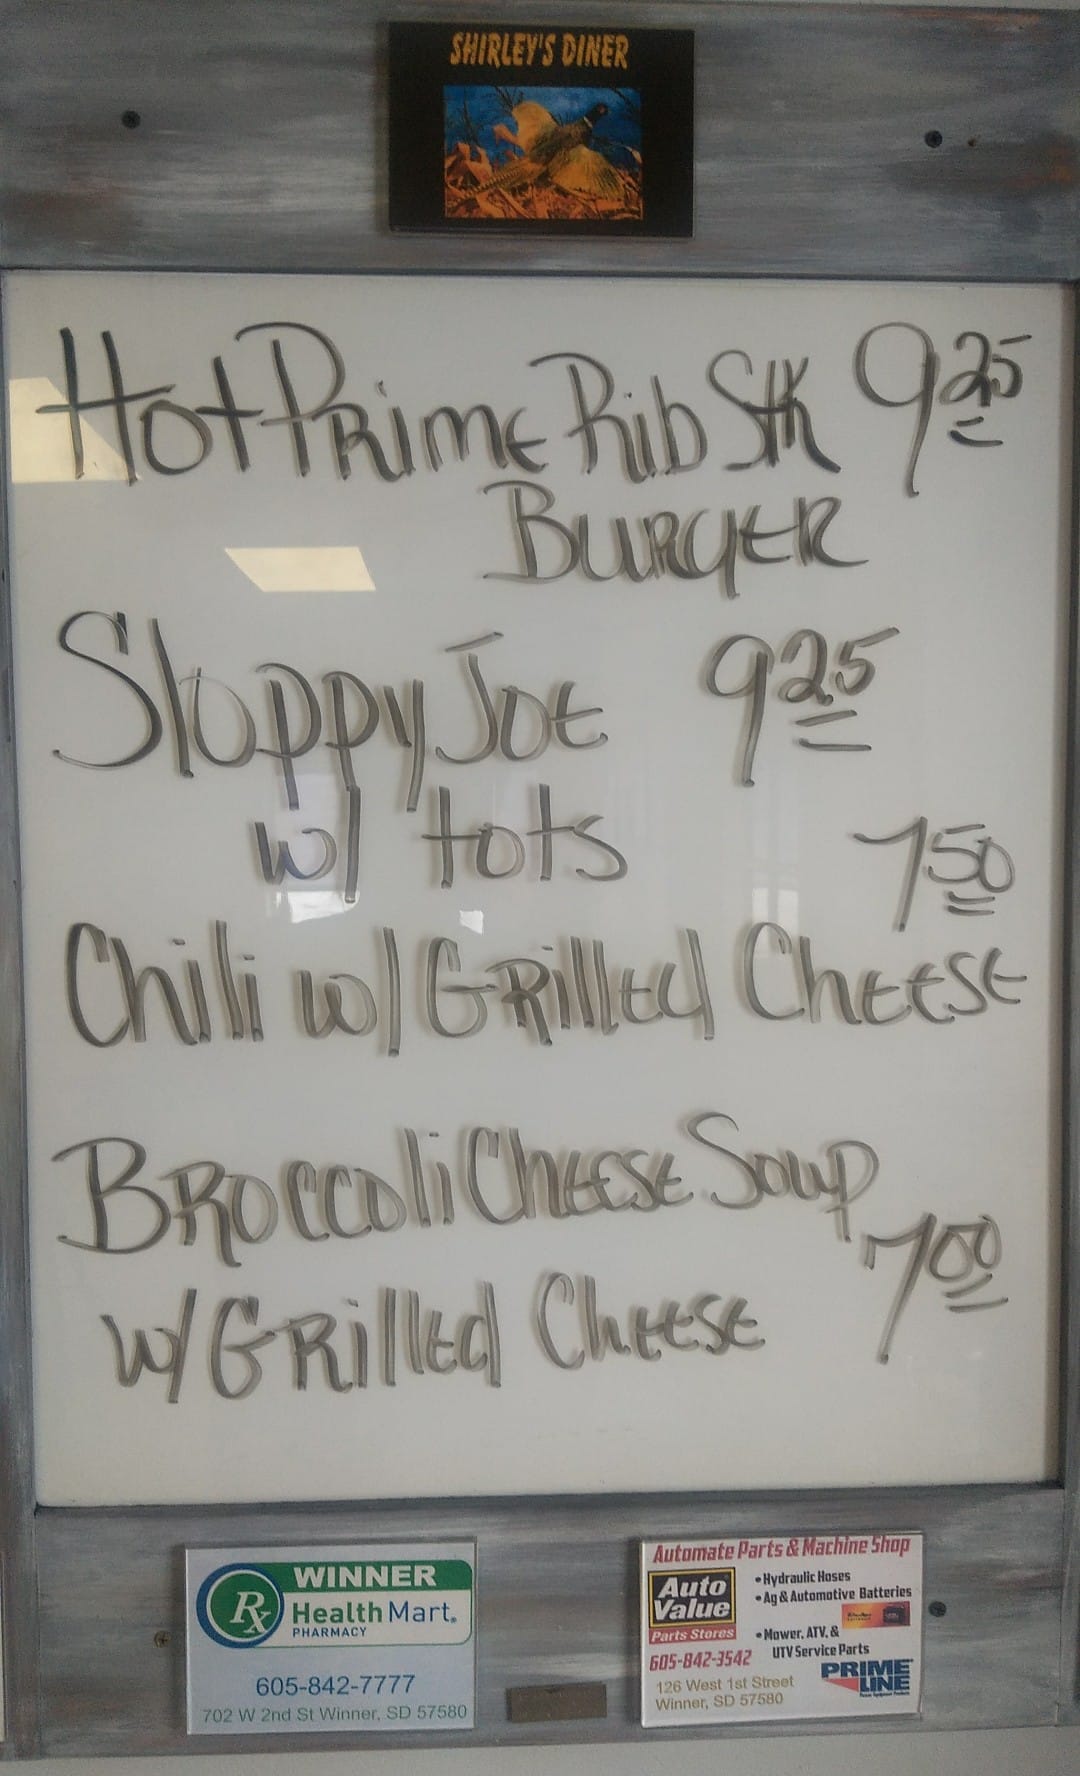 SHIRLEY'S DINER
Hot Prime Rib Stk 9.25
Burger
Sloppy Joe 9.25
w/ tots
7.50
Chili w/ Grilled Cheese
Broccoli Cheese Soup
7.00
w/ Grilled Cheese
WINNER
Rx Health Mart.
PHARMACY
605-842-7777
702 W 2nd St Winner, SD 57580
Automate Parts & Machine Shop
Auto Value
Parts Stores
• Hydraulic Hoses
• Ag & Automotive Batteries
• Mower, ATV, &
UTV Service Parts
605-842-3542
126 West 1st Street
Winner, SD 57580
PRIME LINE